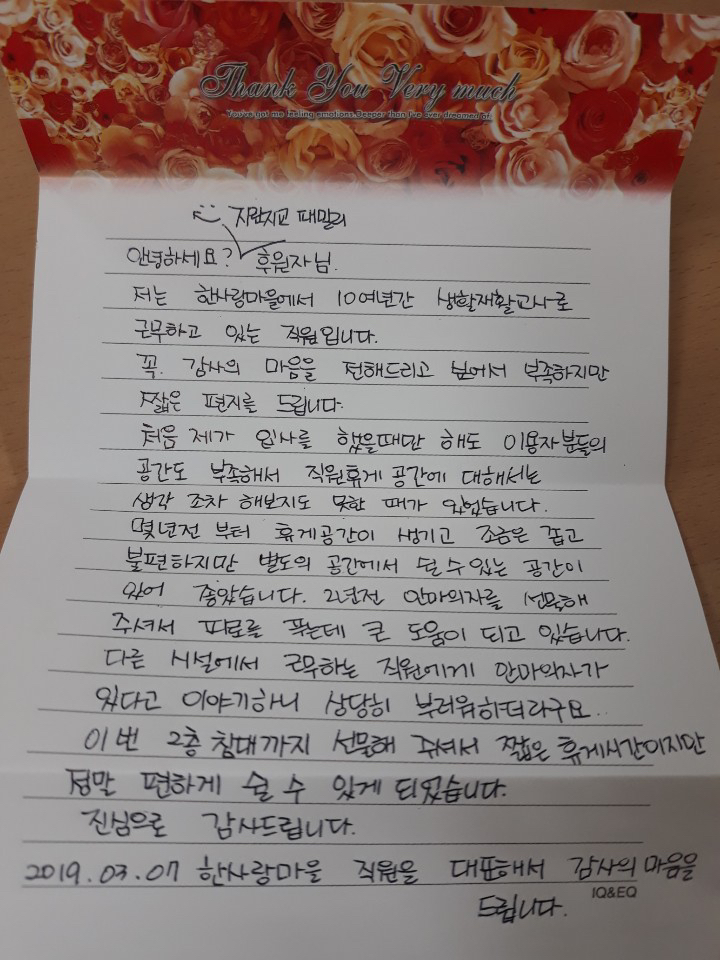 Thank You Very much
You've got me feeling emotions. Deeper than I've ever dreamed of.
지란지교 패밀리
안녕하세요? 후원자님.
저는 한사랑마을에서 10여년간 생활재활교사로
근무하고 있는 직원입니다.
꼭. 감사의 마음을 전해드리고 싶어서 부족하지만
짧은 편지를 드립니다.
처음 제가 입사를 했을때만 해도 이용자분들의
공간도 부족해서 직원휴게 공간에 대해서는
생각 조차 해보지도 못한 때가 있었습니다.
몇년전 부터 휴게공간이 생기고 조금은 좁고
불편하지만 별도의 공간에서 쉴 수 있는 공간이
있어 좋았습니다. 2년전 안마의자를 선물해
주셔서 피로를 푸는데 큰 도움이 되고 있습니다.
다른 시설에서 근무하는 직원에게 안마의자가
있다고 이야기하니 상당히 부러워하더라구요..
이번 2층 침대까지 선물해 주셔서 짧은 휴게시간이지만
정말 편하게 쉴 수 있게 되었습니다.
진심으로 감사드립니다.
2019.03.07 한사랑마을 직원을 대표해서 감사의 마음을
드립니다.
IQ&EQ